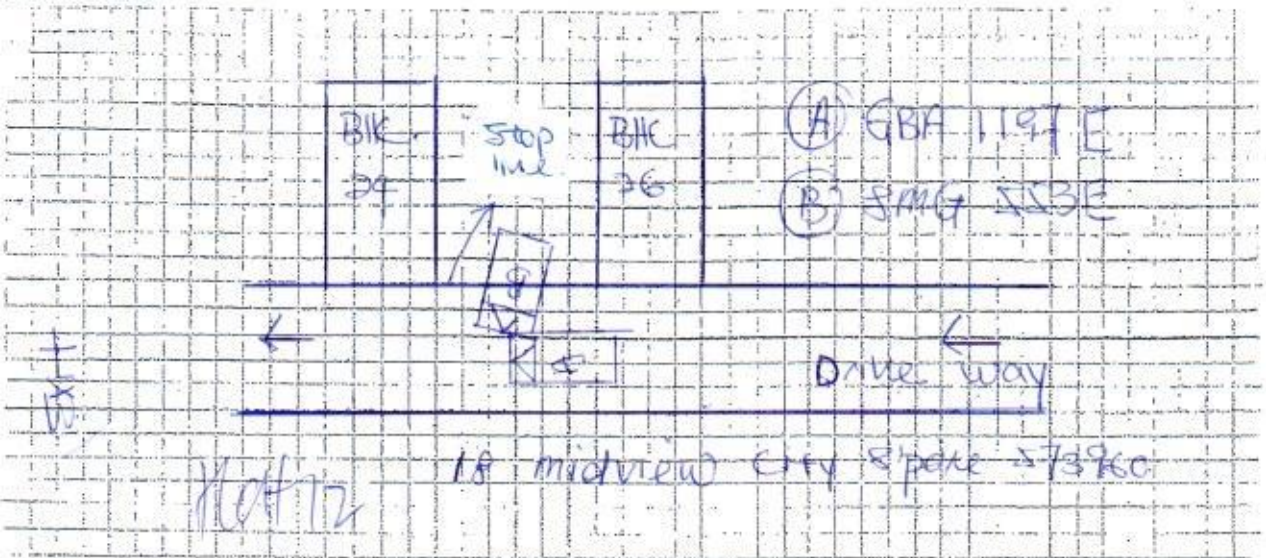 BlK
24
stop
line
BlK
26
(A) GBA 1197E
(B) SMG 5523E
B
A
Drive way
EXIT
18 midview City S'pore 573960